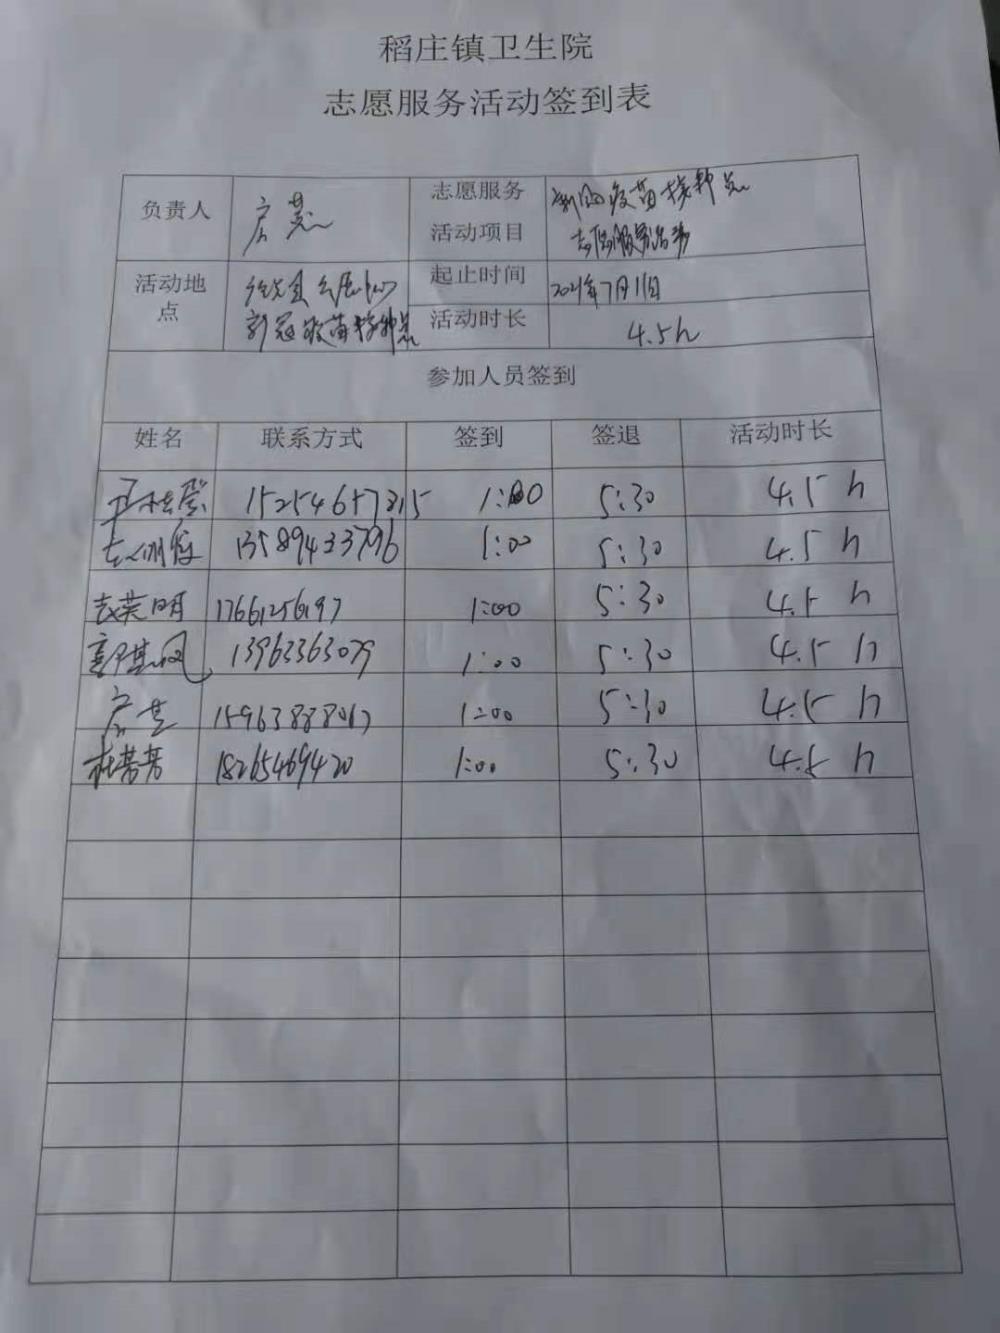 稻庄镇卫生院
志愿服务活动签到表
负责人
志愿服务
活动项目
新冠疫苗接种点
志愿服务活动
活动地
点
新冠疫苗接种点
起止时间
2021年7月11日
活动时长
4.5h
参加人员签到
姓名 联系方式 签到 签退 活动时长
15254657315 1:00 5:30 4.5 h
13589433796 1:00 5:30 4.5 h
17661256197 1:00 5:30 4.5 h
13963363079 1:00 5:30 4.5 h
1:00 5:30 4.5 h
杜芳芳 18265469420 1:00 5:30 4.5 h